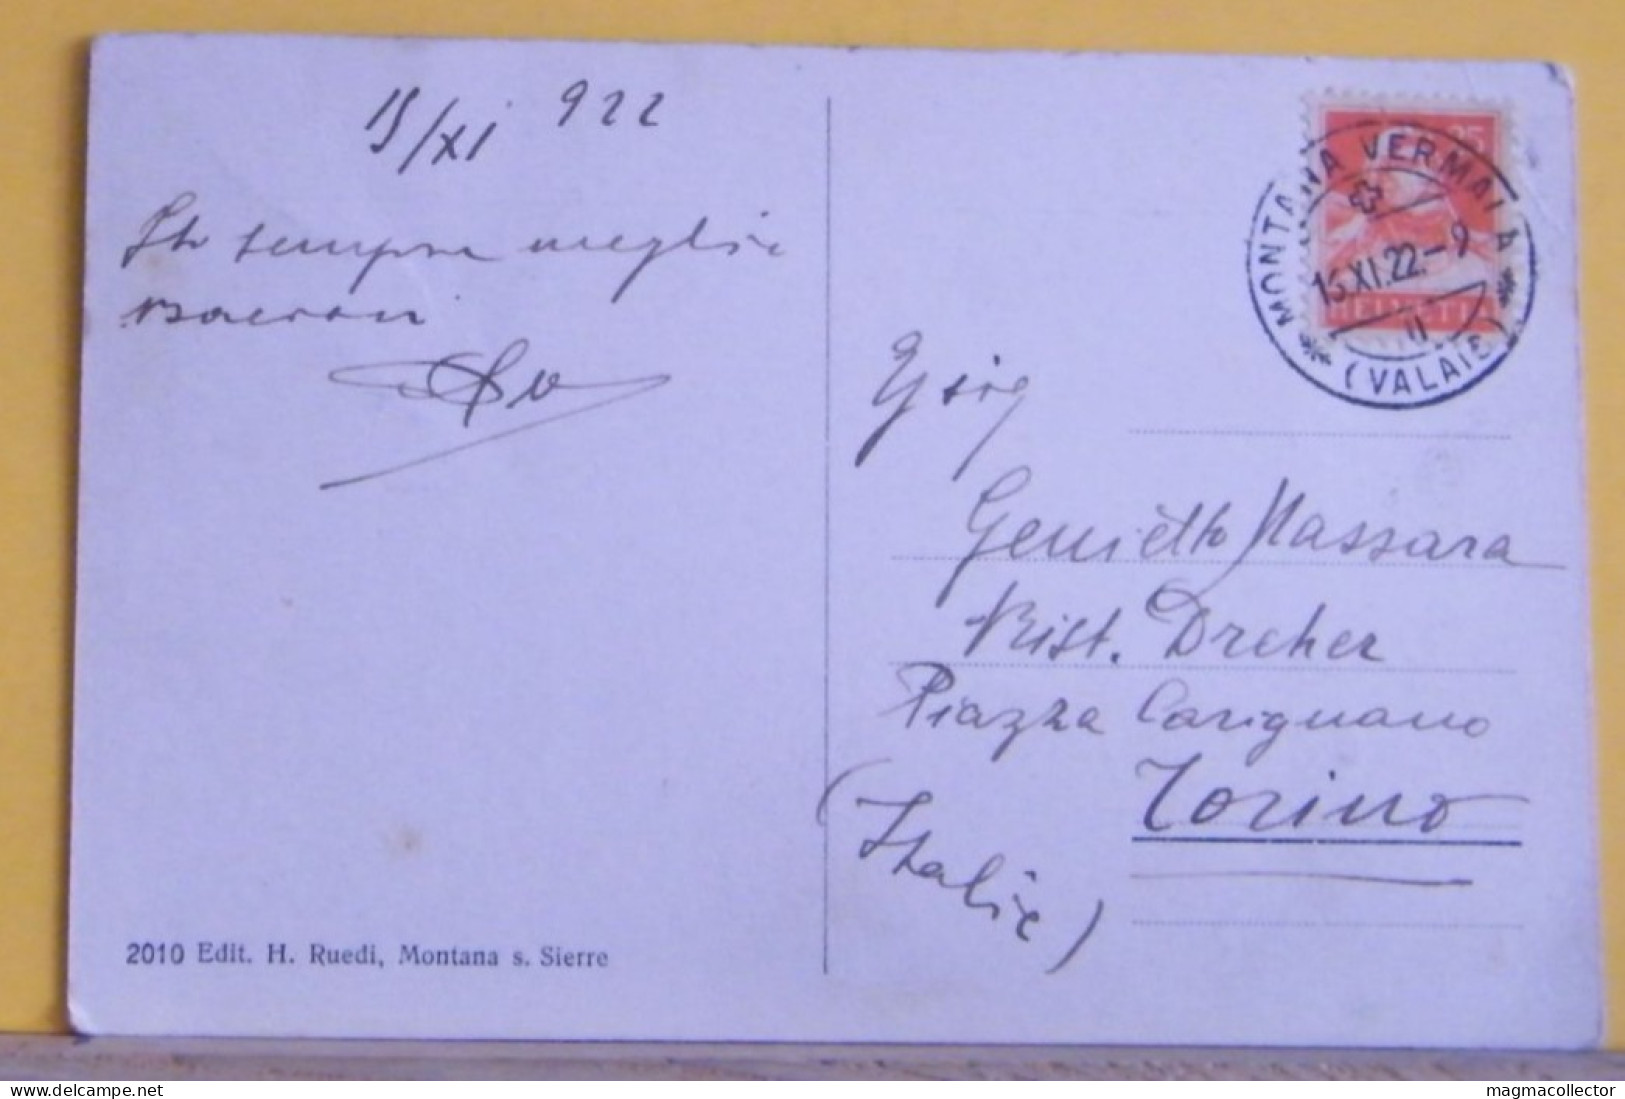 15/XI 922
Sto sempre meglio
Bacioni
25
MONTANA VERMALA
15.XI.22.-9
HELVETIA
II
(VALAIS)
Gsig
Genietto Massara
Rist. Dreher
Piazza Carignano
Torino
(Italie)
2010 Edit. H. Ruedi, Montana s. Sierre
www.delcampe.net
magmacollector